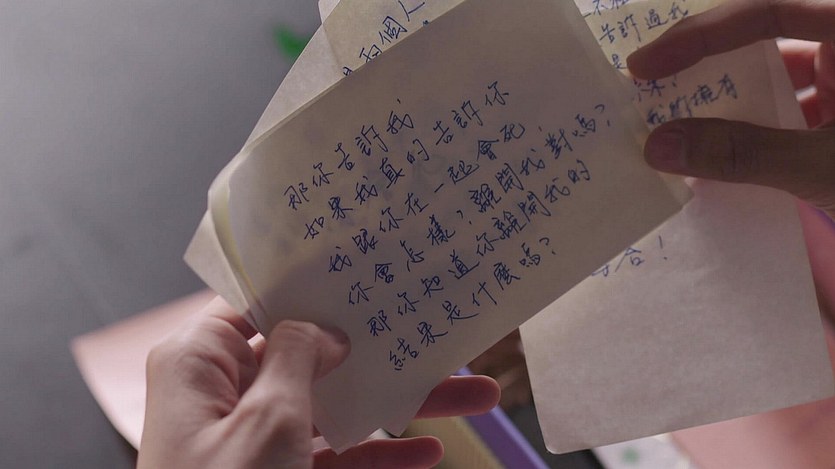 那你告訴我
如果我真的告訴你
我跟你在一起會死,
你會怎樣,離開我對嗎?
那你知道你離開我的
結果是什麼嗎?
個人
告訴過我
是
擁有
合!